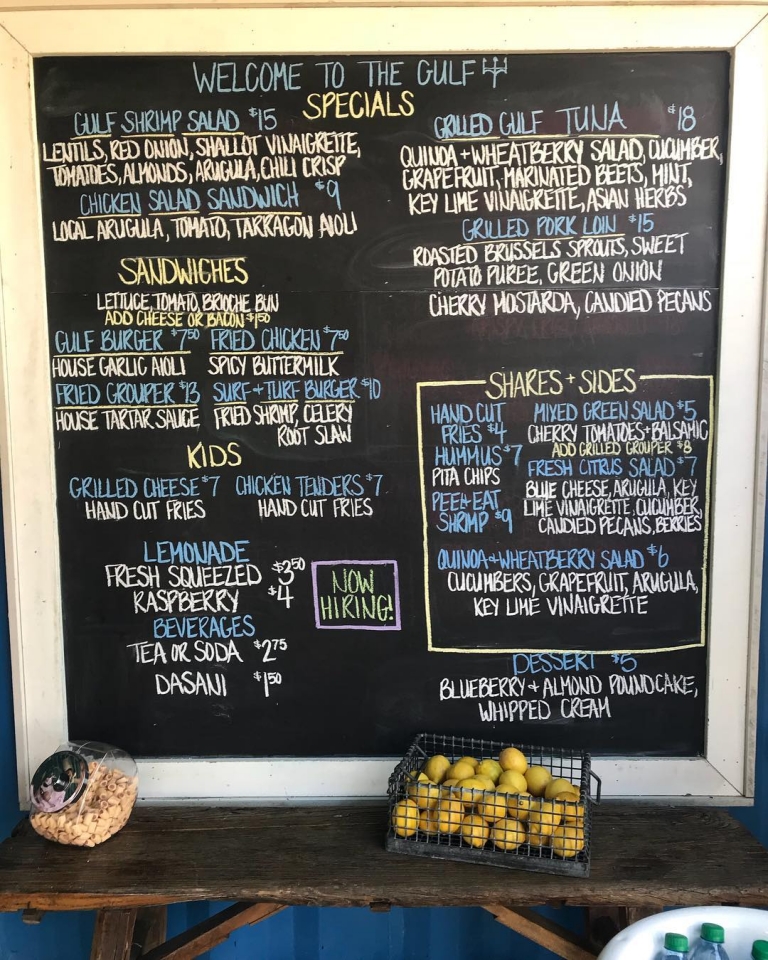 WELCOME TO THE GULF
SPECIALS
GULF SHRIMP SALAD $15
LENTILS, RED ONION, SHALLOT VINAIGRETTE,
TOMATOES, ALMONDS, ARUGULA, CHILI CRISP
CHICKEN SALAD SANDWICH $9
LOCAL ARUGULA, TOMATO, TARRAGON AIOLI
GRILLED GULF TUNA $18
QUINOA + WHEATBERRY SALAD, CUCUMBER,
GRAPEFRUIT, MARINATED BEETS, MINT,
KEY LIME VINAIGRETTE, ASIAN HERBS
GRILLED PORK LOIN $15
ROASTED BRUSSELS SPROUTS, SWEET
POTATO PUREE, GREEN ONION
CHERRY MOSTARDA, CANDIED PECANS
SANDWICHES
LETTUCE, TOMATO, BRIOCHE BUN
ADD CHEESE OR BACON $1.50
GULF BURGER $7.50 FRIED CHICKEN $7.50
HOUSE GARLIC AIOLI SPICY BUTTERMILK
FRIED GROUPER $13 SURF + TURF BURGER $10
HOUSE TARTAR SAUCE FRIED SHRIMP, CELERY
ROOT SLAW
KIDS
GRILLED CHEESE $7 CHICKEN TENDERS $7
HAND CUT FRIES HAND CUT FRIES
LEMONADE
FRESH SQUEEZED $3.50
RASPBERRY $4
BEVERAGES
TEA OR SODA $2.75
DASANI $1.50
NOW
HIRING!
SHARES + SIDES
HAND CUT
FRIES $4
HUMMUS $7
PITA CHIPS
PEEL + EAT
SHRIMP $9
MIXED GREEN SALAD $5
CHERRY TOMATOES + BALSAMIC
ADD GRILLED GROUPER $8
FRESH CITRUS SALAD $7
BLUE CHEESE, ARUGULA, KEY
LIME VINAIGRETTE, CUCUMBER,
CANDIED PECANS, BERRIES
QUINOA + WHEATBERRY SALAD $6
CUCUMBERS, GRAPEFRUIT, ARUGULA,
KEY LIME VINAIGRETTE
DESSERT $5
BLUEBERRY + ALMOND POUNDCAKE,
WHIPPED CREAM